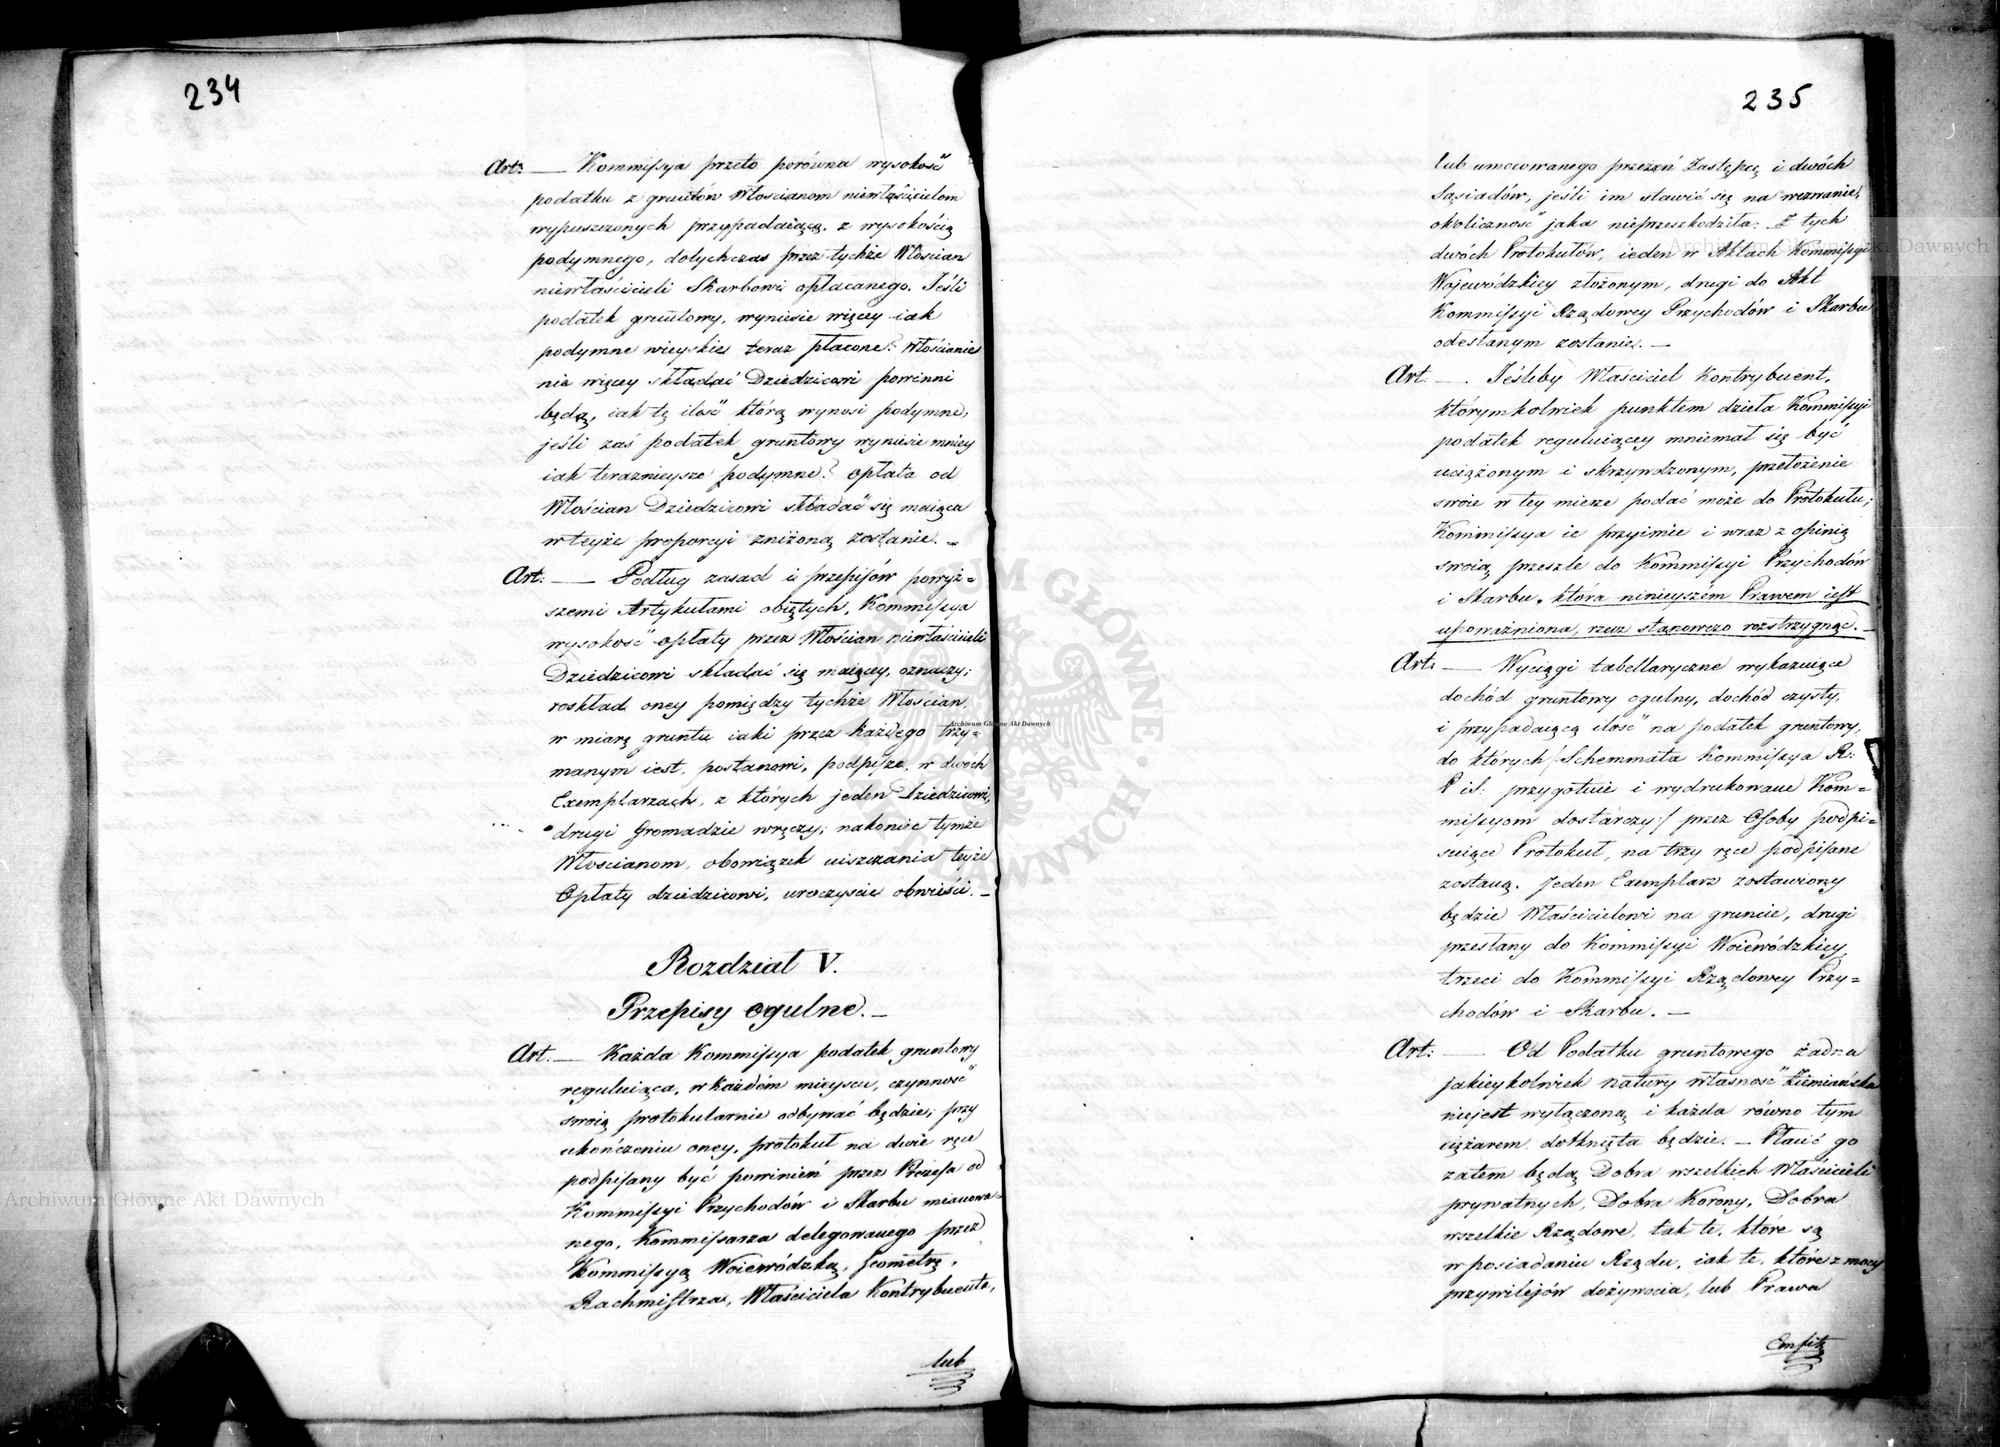 234
Art: — Kommissya przeto porówna wysokość
podatku z gruntów Włoscianom niewłaścicielom
wypuszczonych przypadaiącą, z wysokością
podymnego, dotychczas przez tychże Włoscian
niewłaścicieli Skarbowi opłacanego. Jeśli
podatek gruntowy, wyniesie więcey iak
podymne wieyskie teraz płacone? Włościanie
nie więcey składać Dziedzicowi powinni
będą, iak tę ilość którą wynosi podymne,
jeśli zaś podatek gruntowy wyniesie mniey
iak teraznieysze podymne? opłata od
Włościan Dziedzicowi składać się maiąca
w teyże proporcyi zniżoną zostanie. –
Art: — Podług zasad i przepisów powyż=
szemi Artykułami obiętych, Kommissya
wysokość opłaty przez Włościan niewłaścicieli
Dziedzicowi składać się maiącey, oznaczy;
rozkład oney pomiędzy tychże Włoscian,
w miarę gruntu iaki przez każdego trzy=
manym iest, postanowi, podpisze, w dwóch
Exemplarzach, z których jeden Dziedzicowi,
drugi Gromadzie wręczy; nakoniec tymże
Włoscianom, obowiązek uiszczania teyże
Opłaty dziedzicowi, uroczyscie obwieści. –
Rozdział V.
Przepisy ogulne. –
Art. — Każda Kommissya podatek gruntowy
reguluiąca, w każdém mieyscu, czynność
swoią protokularnie odbywać będzie; przy
ukończeniu oney, protokuł na dwie ręce
podpisany być powinien przez Prezesa od
Kommissyi Przychodów i Skarbu mianowa=
nego, Kommissarza delegowanego przez
Kommissyą Woiewódzką, Jeometrę,
Rachmistrza, Właściciela Kontrybuenta,
lub
235
lub umocowanego przezeń Zastępcę i dwóch
Sąsiadów, jeśli im stawić się na wezwanie,
okoliczność jaka nieprzeszkodziła. Z tych
dwóch Protokułów, ieden w Aktach Kommissyi
Wojewódzkiey złożonym, drugi do Akt
Kommissyi Rządowey Przychodów i Skarbu
odesłanym zostanie. —
Art. — Jeśliby Właściciel Kontrybuent,
którymkolwiek punktem dzieła Kommissyi
podatek reguluiącey mniemał się być
uciążonym i skrzywdzonym, przełożenie
swoie w tey mierze podać może do Protokułu;
Kommissya ie przyimie i wraz z opinią
swoią przeszle do Kommissyi Przychodów
i Skarbu, która ninieyszém Prawem iest
upoważniona, rzecz stanowczo rozstrzygnąć. –
Art: — Wyciągi tabellaryczne wykazuiące
dochód gruntowy ogulny, dochód czysty,
i przypadaiącą ilość na podatek gruntowy,
do których /:Schemmata Kommissya R:
P. i S: przygotuie i wydrukowane Kom=
missyom dostarczy:/ przez Osoby podpi=
suiące Protokuł, na trzy ręce podpisane
zostaną. Jeden Exemplarz zostawiony
będzie Właścicielowi na gruncie, drugi
przesłany do Kommissyi Woiewódzkiey,
trzeci do Kommissyi Rządowey Przy=
chodów i Skarbu. —
Art: — Od Podatku gruntowego żadna
jakieykolwiek natury własność Ziemiańska
niejest wyłączoną i każda równo tym
ciężarem dotknięta będzie. – Płacić go
zatem będą Dobra wszelkich Właścicieli
prywatnych, Dobra Korony, Dobra
wszelkie Rządowe, tak te, które są
w posiadaniu Rządu, iak te, które z mocy
przywilejów dożywocia, lub Prawa
Emfit: